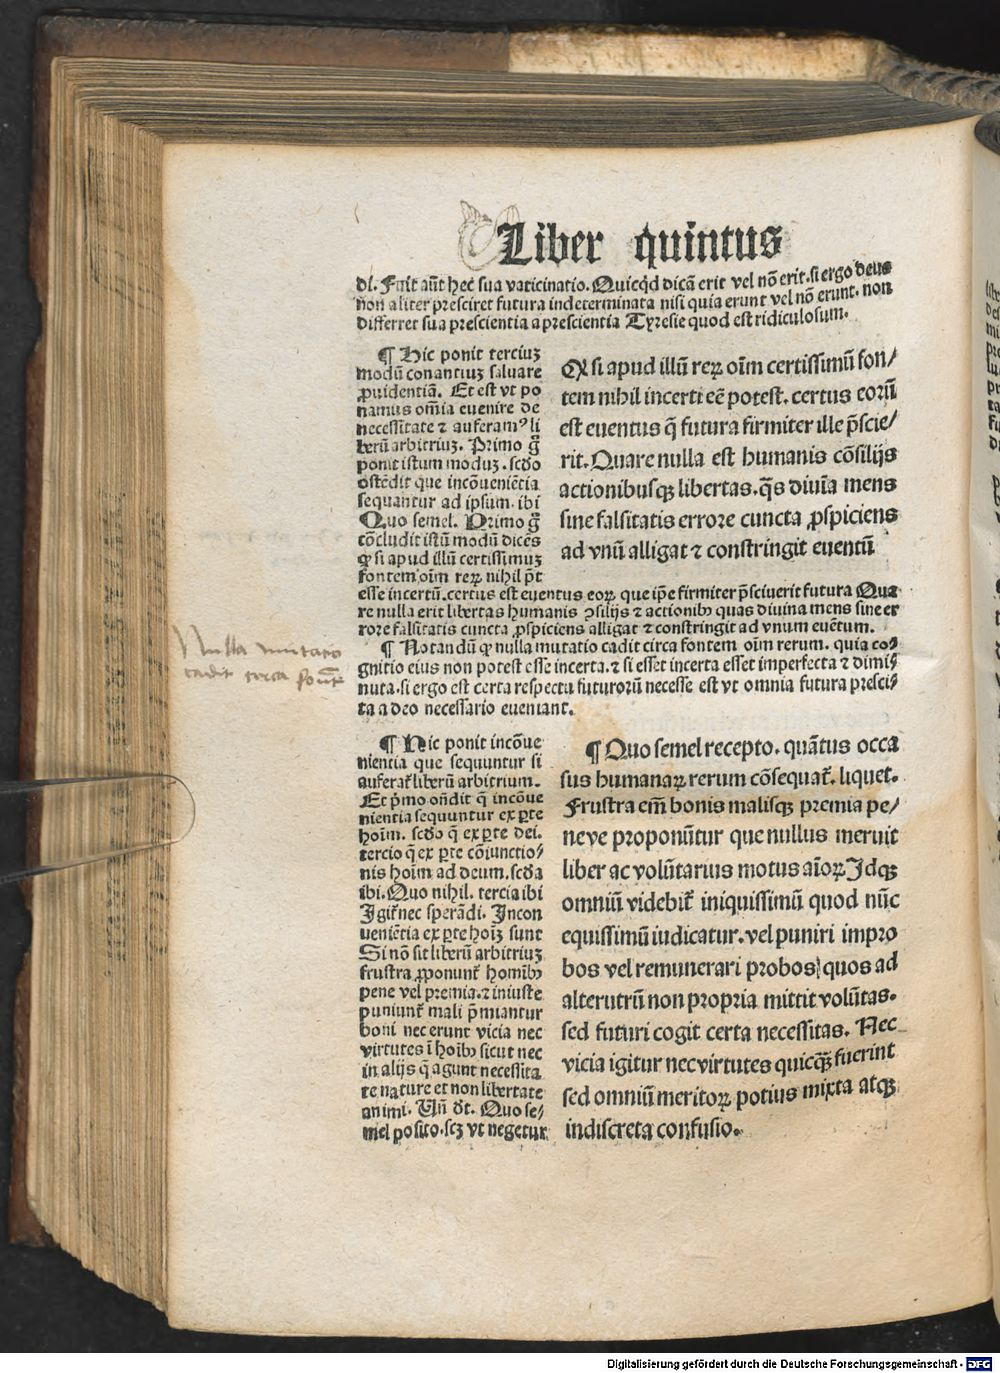 Liber quintus
dl. Fuit aūt hec sua vaticinatio. Quicq̄d dicā erit vel nō erit. si ergo deus
non aliter presciret futura indeterminata nisi quia erunt vel nō erunt. non
differret sua prescientia a prescientia Tyresie quod est ridiculosum.
¶ Hic ponit terciuꝫ
modū conantiuꝫ saluare
ꝓuidentiā. Et est vt po
namus om̄ia euenire de
necessitate ⁊ auferamꝰ li
berū arbitriuꝫ. Primo ḡ
ponit istum moduꝫ. scd̄o
ostēdit que incōueniētia
sequantur ad ipsum. ibi
Quo semel. Primo ḡ
cōcludit istū modū dicēs
ꝙ si apud illū certissimuꝫ
fontem oīm reꝝ nihil pt̄
Qꝛ si apud illū reꝝ oīm certissimū fon/
tem nihil incerti eē potest. certus eoꝝū
est euentus q̄ futura firmiter ille p̄scie/
rit. Quare nulla est humanis cōsilijs
actionibusqꝫ libertas. q̄s diuīa mens
sine falsitatis errore cuncta ꝓspiciens
ad vnū alligat ⁊ constringit euentū
esse incertū. certus est euentus eoꝝ que ip̄e firmiter p̄sciuerit futura Qua
re nulla erit libertas humanis ꝯsilijs ⁊ actionibꝰ quas diuina mens sine er
rore falsitatis cuncta ꝓspiciens alligat ⁊ constringit ad vnum euētum.
¶ Notandū ꝙ nulla mutatio cadit circa fontem oīm rerum. quia co/
gnitio eius non potest esse incerta. ⁊ si esset incerta esset imperfecta ⁊ dimi/
nuta. si ergo est certa respectu futurorū necesse est vt omnia futura presci/
ta a deo necessario eueniant.
Nulla mutatio
cadit circa fontē
¶ Hic ponit incōue
nientia que sequuntur si
auferat᷑ liberū arbitrium.
Et p̄mo on̄dit q̄ incōue
nientia sequuntur ex ꝑte
hoīm. scd̄o q̄ ex ꝑte dei.
tercio q̄ ex ꝑte cōiunctio/
nis hoīm ad deum. scd̄a
ibi. Quo nihil. tercia ibi
Igit᷑ nec sperādi. Incon
ueniētia ex ꝑte hoīꝫ sunt
Si nō sit liberū arbitriuꝫ
frustra ꝓponunt᷑ homībꝰ
pene vel premia. ⁊ iniuste
puniunt᷑ mali p̄miantur
boni nec erunt vicia nec
virtutes ī hoībꝰ sicut nec
in alijs q̄ agunt necessita
te nature et non libertate
animi. Vn̄ dt. Quo se/
mel posito. scꝫ vt negetur
¶ Quo semel recepto. quātus occa
sus humanaꝝ rerum cōsequat᷑. liquet.
Frustra em̄ bonis malisqꝫ premia pe/
neve proponūtur que nullus meruit
liber ac volūtarius motus aīoꝝ Idqꝫ
omniū videbit᷑ iniquissimū quod nūc
equissimū iudicatur. vel puniri impro
bos vel remunerari probos quos ad
alterutrū non propria mittit volūtas.
sed futuri cogit certa necessitas. Nec
vicia igitur nec virtutes quicqꝫ fuerint
sed omniū meritoꝝ potius mixta atqꝫ
indiscreta confusio.
Digitalisierung gefördert durch die Deutsche Forschungsgemeinschaft - DFG